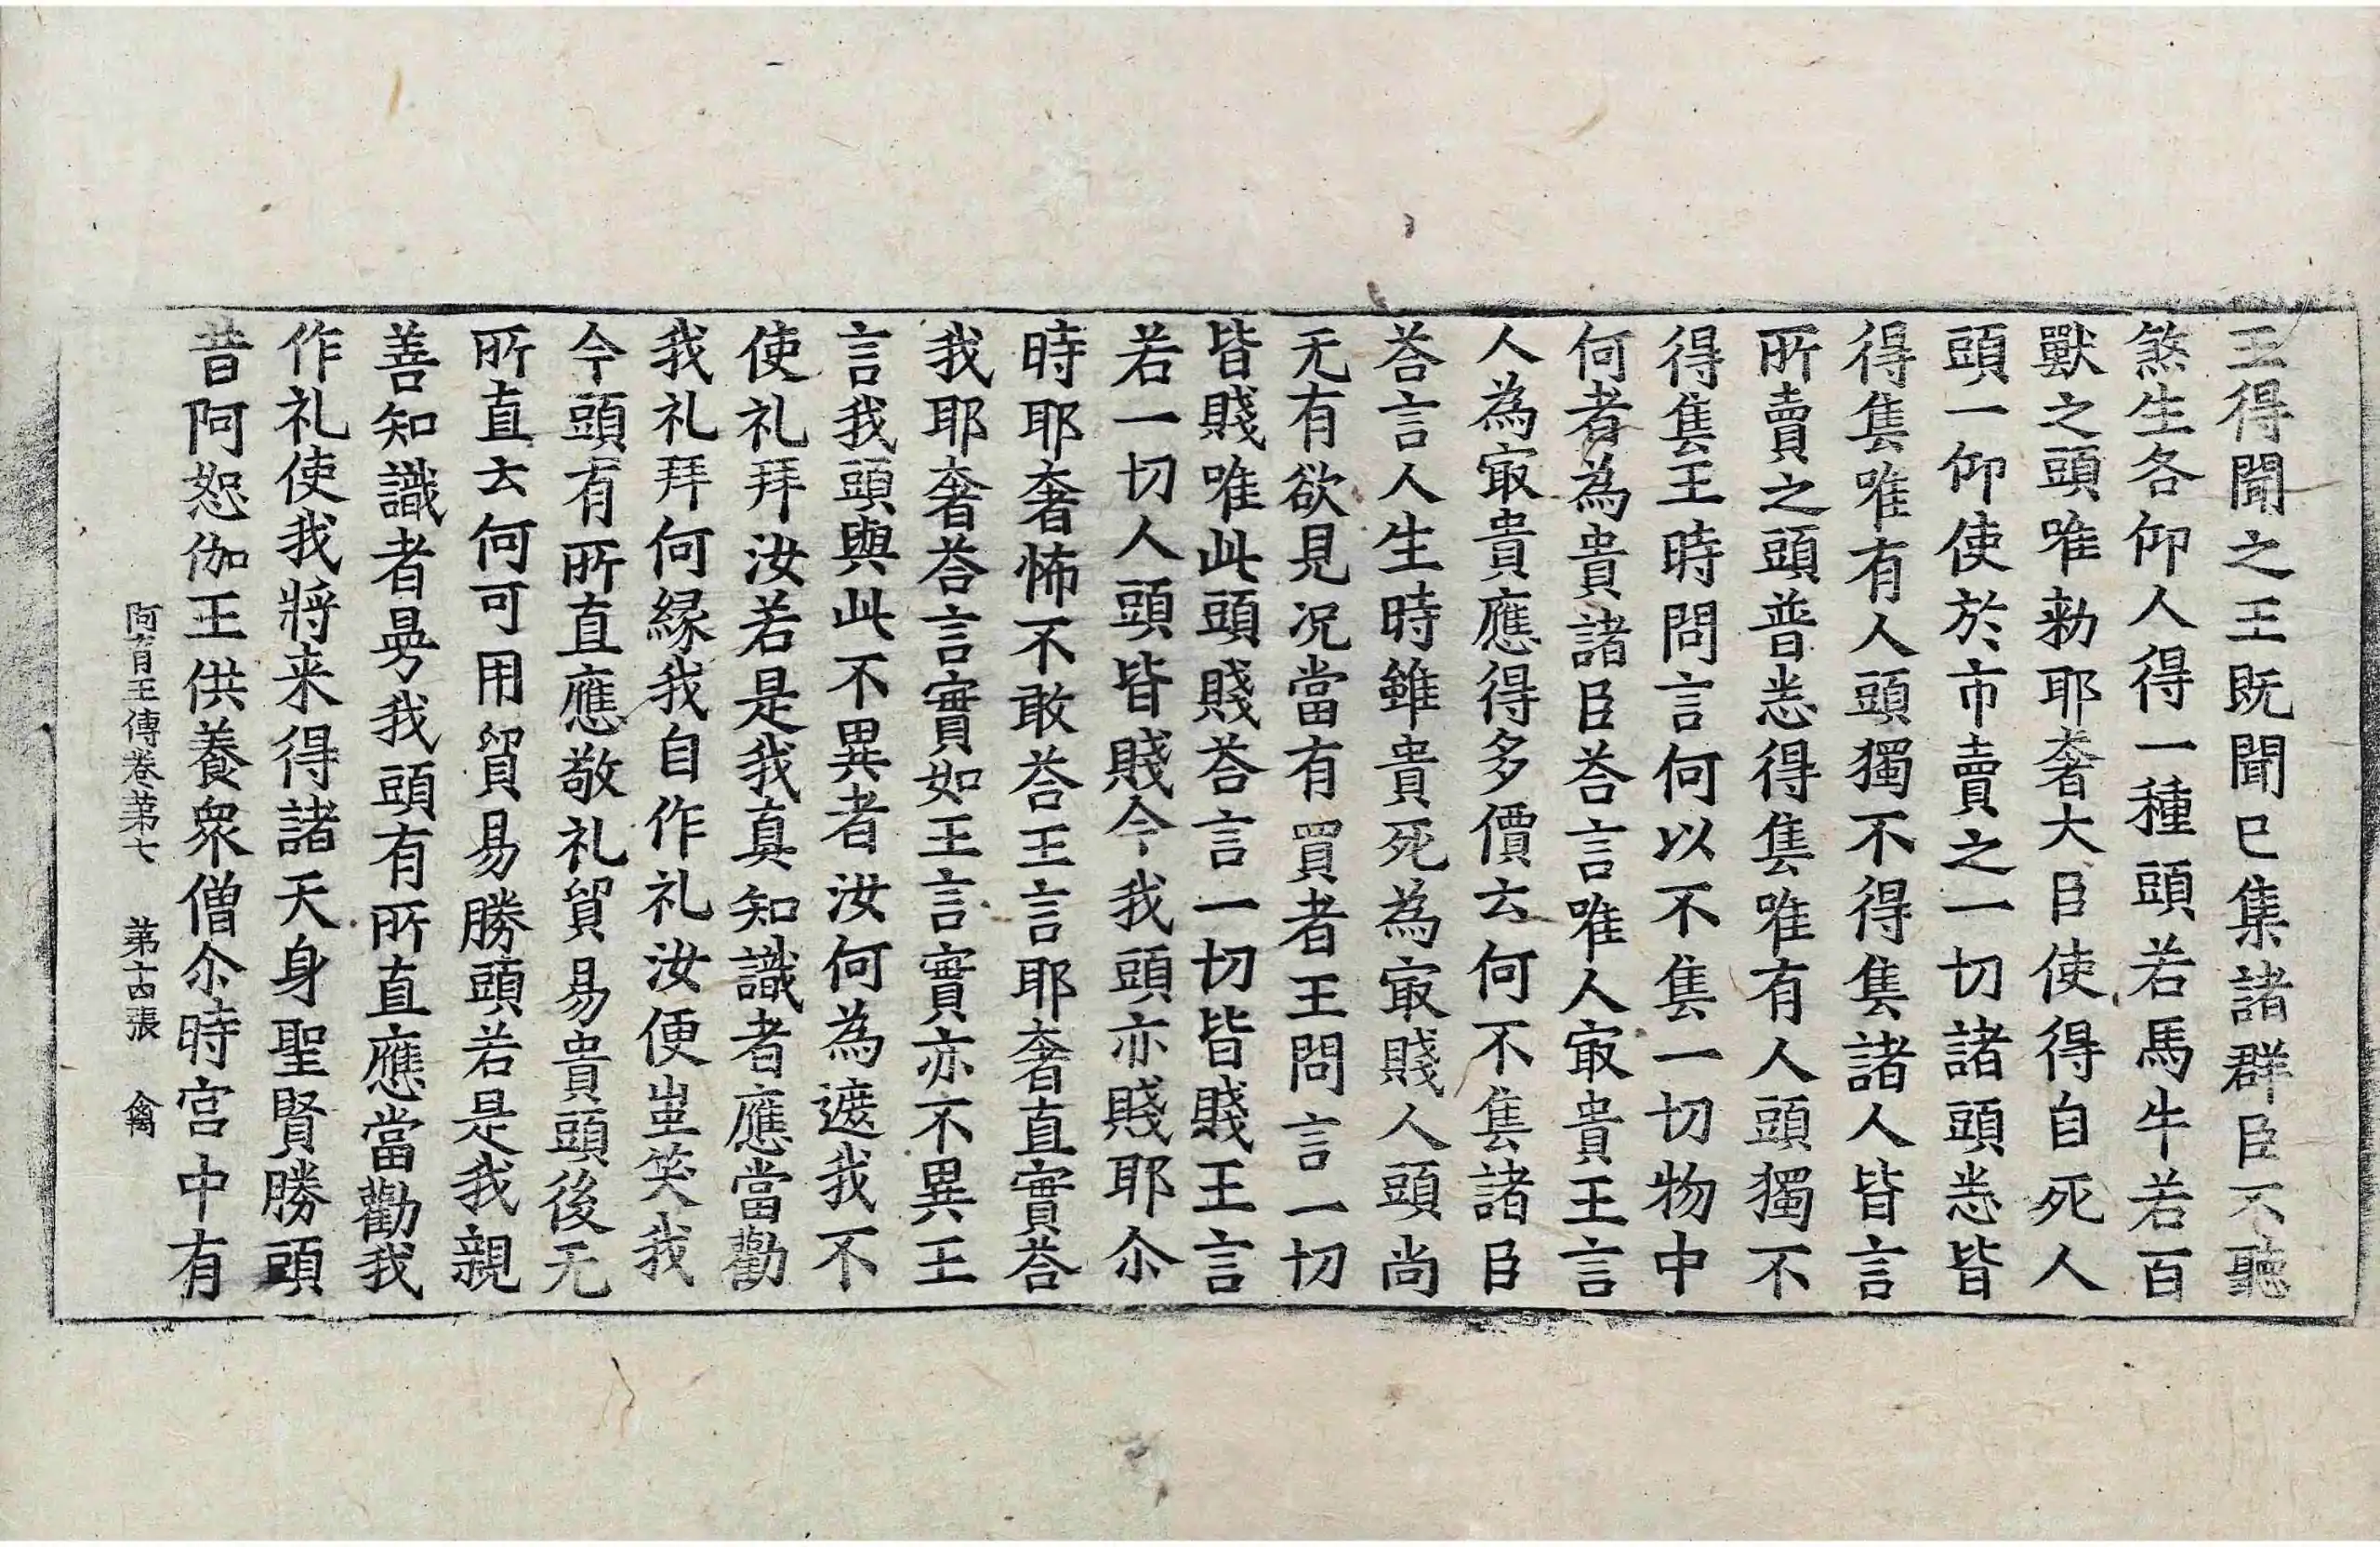 王得聞之王既聞已集諸群臣不聽
煞生各仰人得一種頭若馬牛若百
獸之頭唯勑耶奢大臣使得自死人
頭一仰使於市賣之一切諸頭悉皆
得售唯有人頭獨不得售諸人皆言
所賣之頭普悉得售唯有人頭獨不
得售王時問言何以不售一切物中
何者為貴諸臣荅言唯人冣貴王言
人為冣貴應得多價云何不售諸臣
荅言人生時雖貴死為冣賤人頭尚
无有欲見况當有買者王問言一切
皆賤唯此頭賤荅言一切皆賤王言
若一切人頭皆賤今我頭亦賤耶尒
時耶奢怖不敢荅王言耶奢直實荅
我耶奢荅言實如王言實亦不異王
言我頭與此不異者汝何為遮我不
使礼拜汝若是我真知識者應當勸
我礼拜何緣我自作礼汝便蚩笑我
今頭有所直應敬礼貿易貴頭後无
所直云何可用貿易勝頭若是我親
善知識者曼我頭有所直應當勸我
作礼使我將来得諸天身聖賢勝頭
昔阿恕伽王供養衆僧尒時宫中有
阿育王傳卷第七 第古張 禽